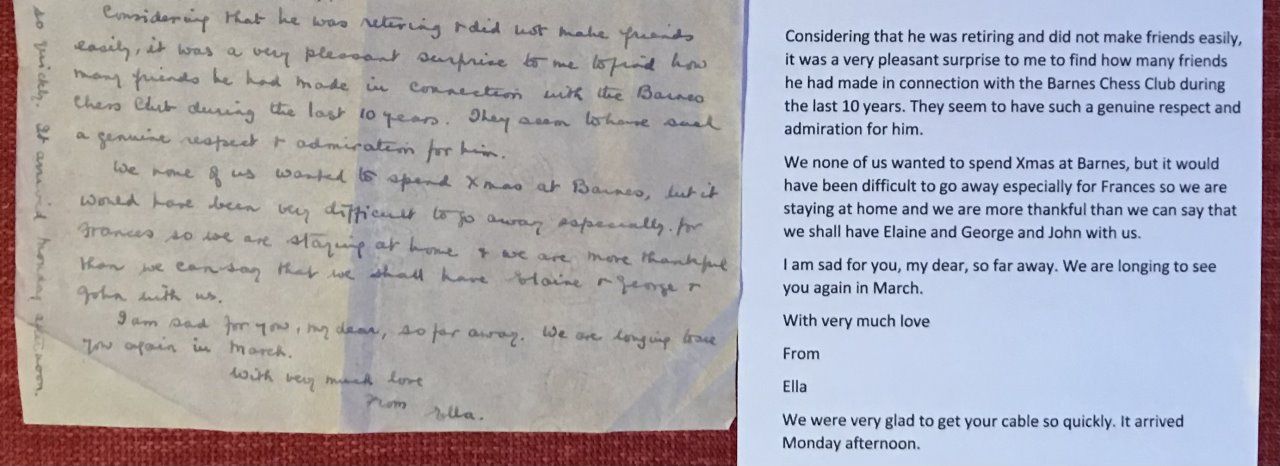 Considering that he was retiring & did not make friends
easily, it was a very pleasant surprise to me to find how
many friends he had made in connection with the Barnes
Chess Club during the last 10 years. They seem to have such
a genuine respect & admiration for him.
We none of us wanted to spend Xmas at Barnes, but it
would have been very difficult to go away especially for
Frances so we are staying at home & we are more thankful
than we can say that we shall have Elaine & George &
John with us.
I am sad for you, my dear, so far away. We are longing to see
you again in March.
With very much love
From
Ella.
so quickly. It arrived Monday afternoon.
Considering that he was retiring and did not make friends easily,
it was a very pleasant surprise to me to find how many friends
he had made in connection with the Barnes Chess Club during
the last 10 years. They seem to have such a genuine respect and
admiration for him.
We none of us wanted to spend Xmas at Barnes, but it would
have been difficult to go away especially for Frances so we are
staying at home and we are more thankful than we can say that
we shall have Elaine and George and John with us.
I am sad for you, my dear, so far away. We are longing to see
you again in March.
With very much love
From
Ella
We were very glad to get your cable so quickly. It arrived
Monday afternoon.